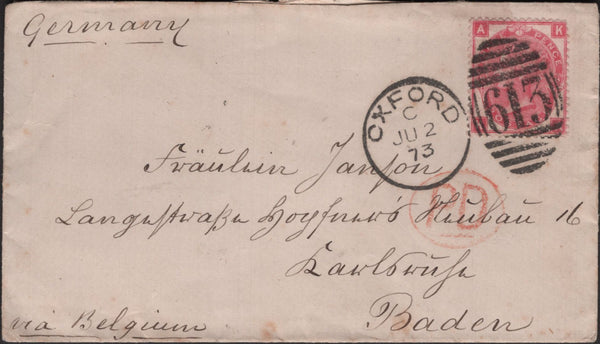 Germany
A K
PENCE
613
OXFORD
C
JU 2
73
Fräulein Janson
Langestraße Hopfner's Neubau 16
PD
Karlsruhe
Baden
via Belgium